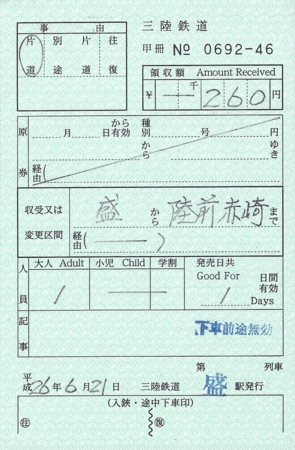 三陸鉄道
事由
片道 別途 片道 往復
甲冊 № 0692-46
領収額 Amount Received
¥ 千 260円
原券
月 日から有効 種別 号 円
から ゆき
経由
収受又は変更区間
盛から陸前赤崎まで
経由( )
人員
大人 Adult 小児 Child 学割
1
発売日共 Good For 1 日間有効 Days
記事
下車前途無効
第 列車
平成26年6月21日 三陸鉄道 盛 駅発行
(入鋏・途中下車印)